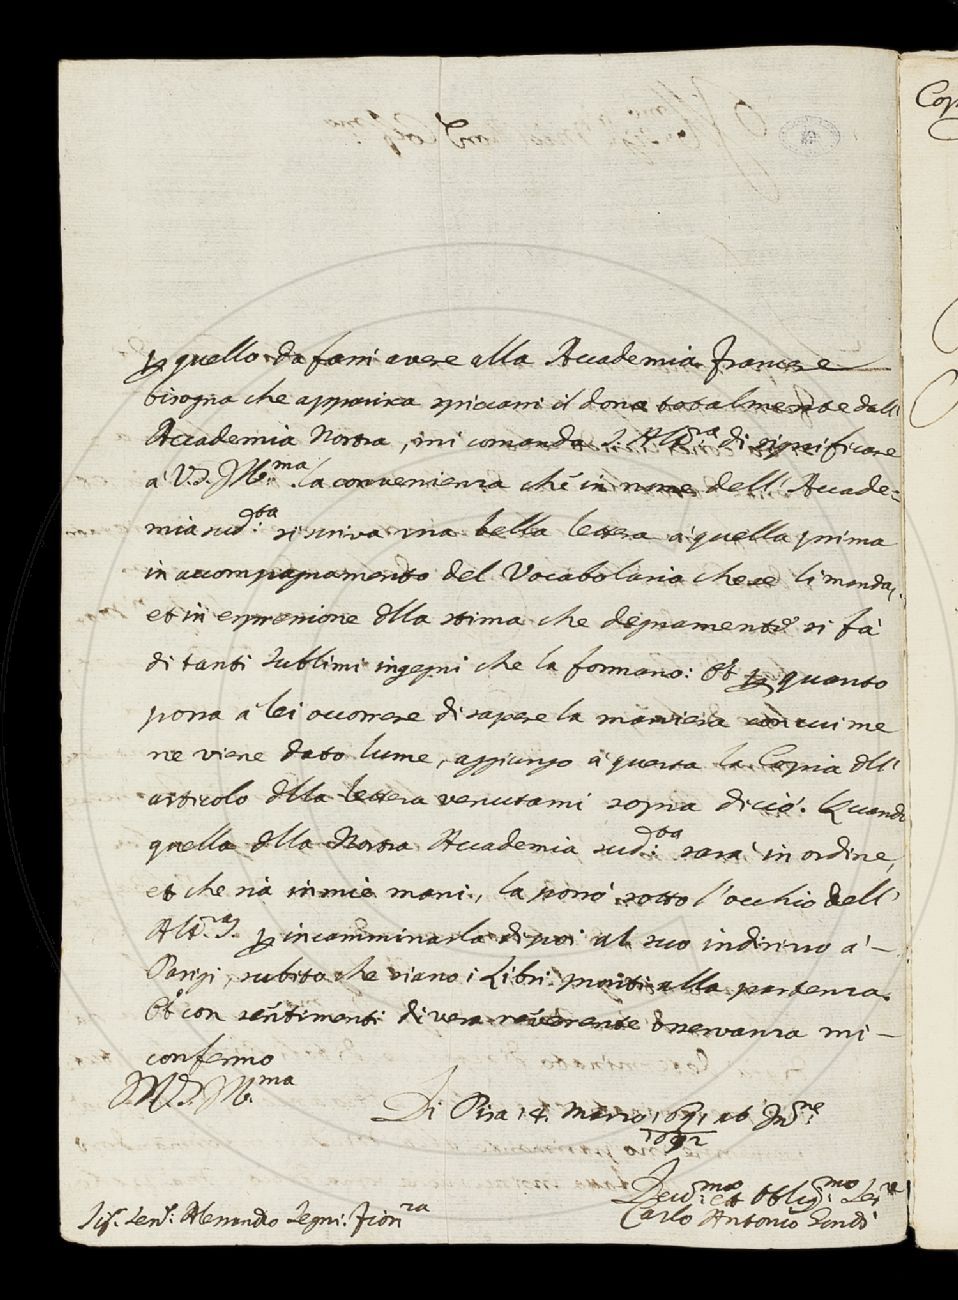 Cop
p quello da farsi avere alla Accademia Franzese
bisogna che apparisca spiccarsi il dono totalmente dall'
Accademia Nostra, mi comanda S. Alt.ra di significare
à V.S. Ill.ma la convenienza che in nome dell'Accade=
mia sud.ta si scriva una bella lettera à quella prima
in accompagnamento del Vocabolario che se li manda,
et in espressione della stima che degnamente si fà
di tanti sublimi ingegni che la formano: Et p quanto
possa à lei occorrere di sapere la maniera con cui me
ne viene dato lume, aggiungo à questa la Copia dell'
articolo della lettera venutami sopra di ciò. Quando
quella della Nostra Accademia sud.ta sarà in ordine,
et che sia in mie mani, la porrò sotto l'occhio dell'
Alt.ra S. p incamminarla dipoi al suo indirizzo à
Parigi, subito che siano i Libri pronti alla partenza.
Et con sentimenti di vera reverente osservanza mi
confermo
D. V.S. Ill.ma
Di Pisa 14. Marzo 1691 ab Inc.ne
1692
Dev.mo et Oblig.mo Ser.re
Carlo Antonio Gondi
Sig.r Sen.r Alessandro Segni: Fior.za